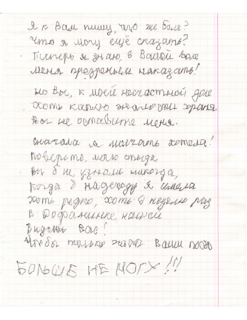 Я к Вам пишу, что же боле?
Что я могу ещё сказать?
Теперь я знаю, в Вашей воле
Меня презреньем наказать!
Но Вы, к моей несчастной доле
Хоть каплю жалости храня
Вы не оставите меня.
Сначала я молчать хотела!
Поверьте, моего стыда
Вы б не узнали никогда,
Когда б надежду я имела
Хоть редко, хоть в неделю раз
В нашей
Видеть Вас!
Чтобы только Ваши
БОЛЬШЕ НЕ МОГУ!!!